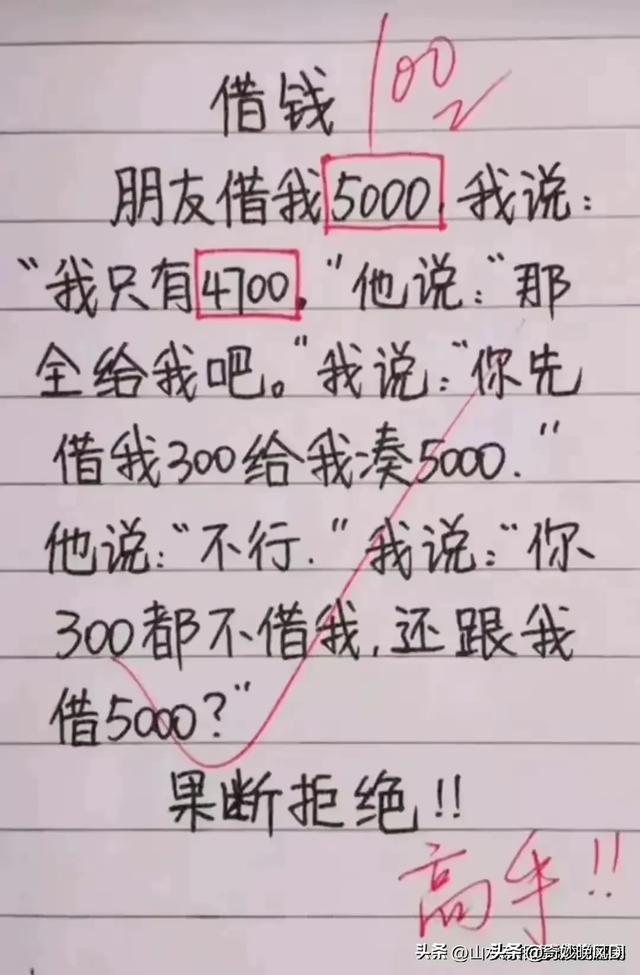 借钱 100
朋友借我5000,我说:
“我只有4700.”他说:“那
全给我吧。”我说:“你先
借我300给我凑5000.”
他说:“不行.”我说:“你
300都不借我,还跟我
借5000?”
果断拒绝!!
高手!!